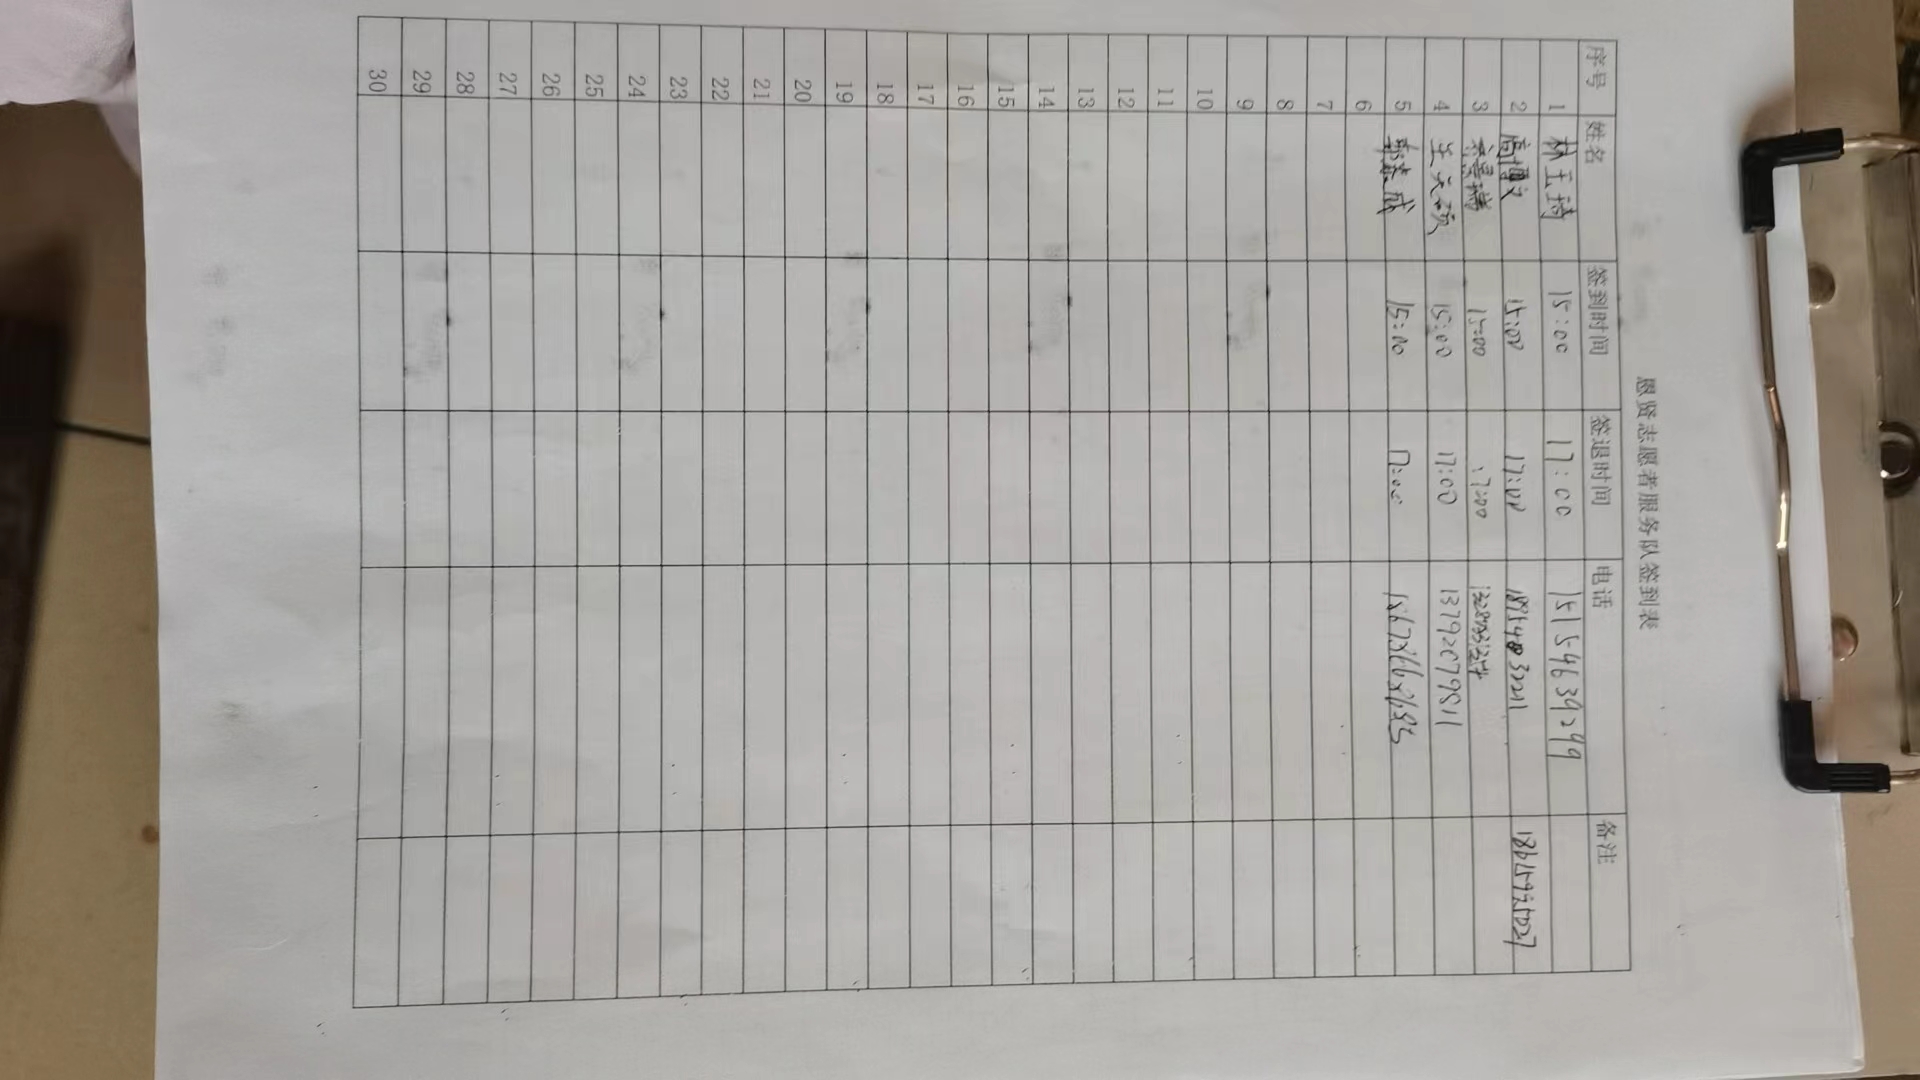 恩贤志愿者服务队签到表
序号 姓名 签到时间 签退时间 电话 备注
1 林玉琦 15:00 17:00 15154639299
2 高博文 15:00 17:00
3 15:00 17:00
4 15:00 17:00 13792079811
5 15:00 17:00
6
7
8
9
10
11
12
13
14
15
16
17
18
19
20
21
22
23
24
25
26
27
28
29
30